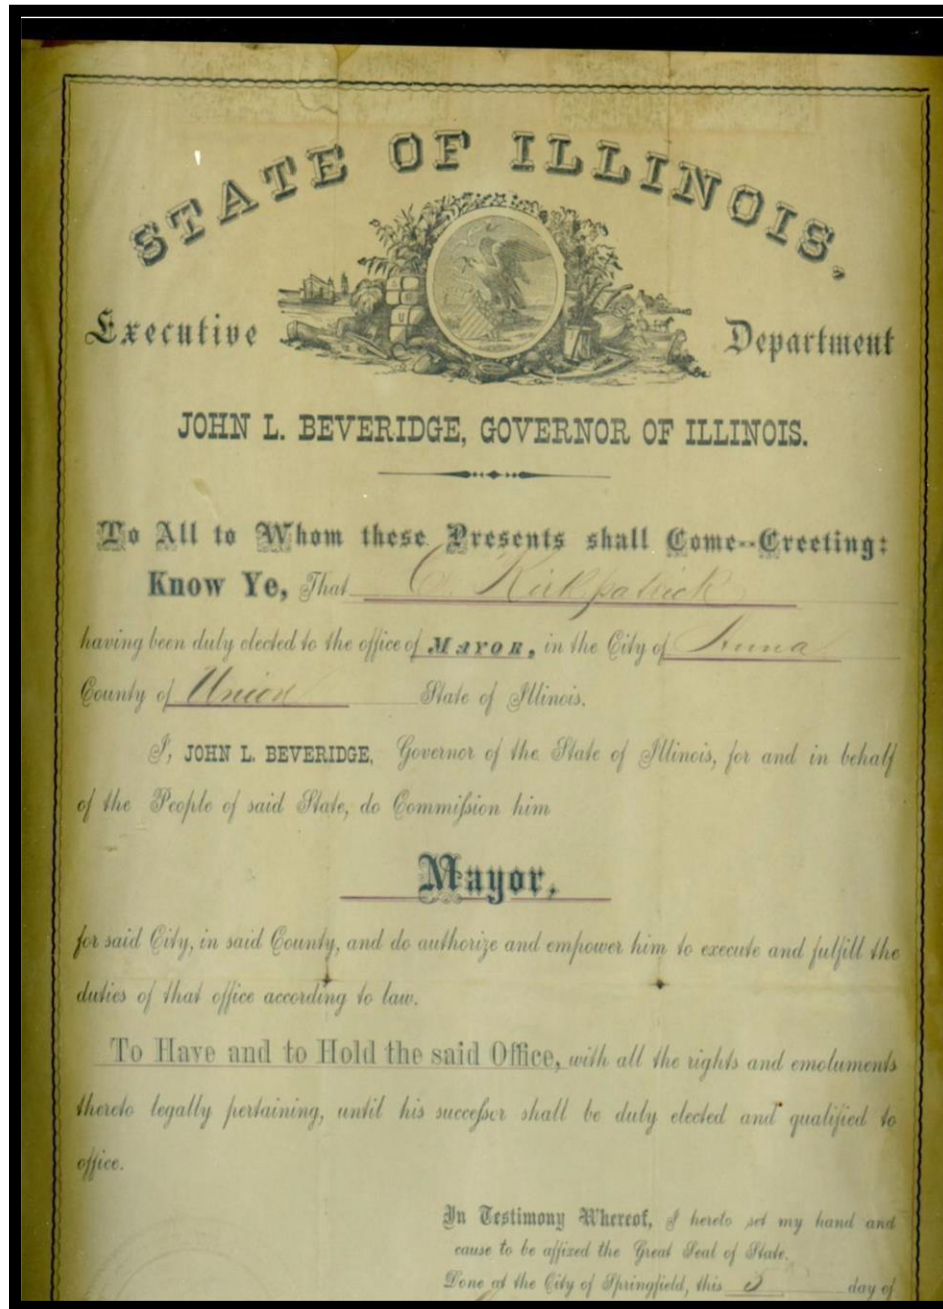 STATE OF ILLINOIS,
Executive Department
JOHN L. BEVERIDGE, GOVERNOR OF ILLINOIS.
To All to Whom these Presents shall Come--Greeting:
Know Ye, That C. Kirkpatrick
having been duly elected to the office of MAYOR, in the City of Anna
County of Union State of Illinois.
I, JOHN L. BEVERIDGE, Governor of the State of Illinois, for and in behalf
of the People of said State, do Commission him
Mayor,
for said City, in said County, and do authorize and empower him to execute and fulfill the
duties of that office according to law.
To Have and to Hold the said Office, with all the rights and emoluments
thereto legally pertaining, until his successor shall be duly elected and qualified to
office.
In Testimony Whereof, I hereto set my hand and
cause to be affixed the Great Seal of State.
Done at the City of Springfield, this 5 day of